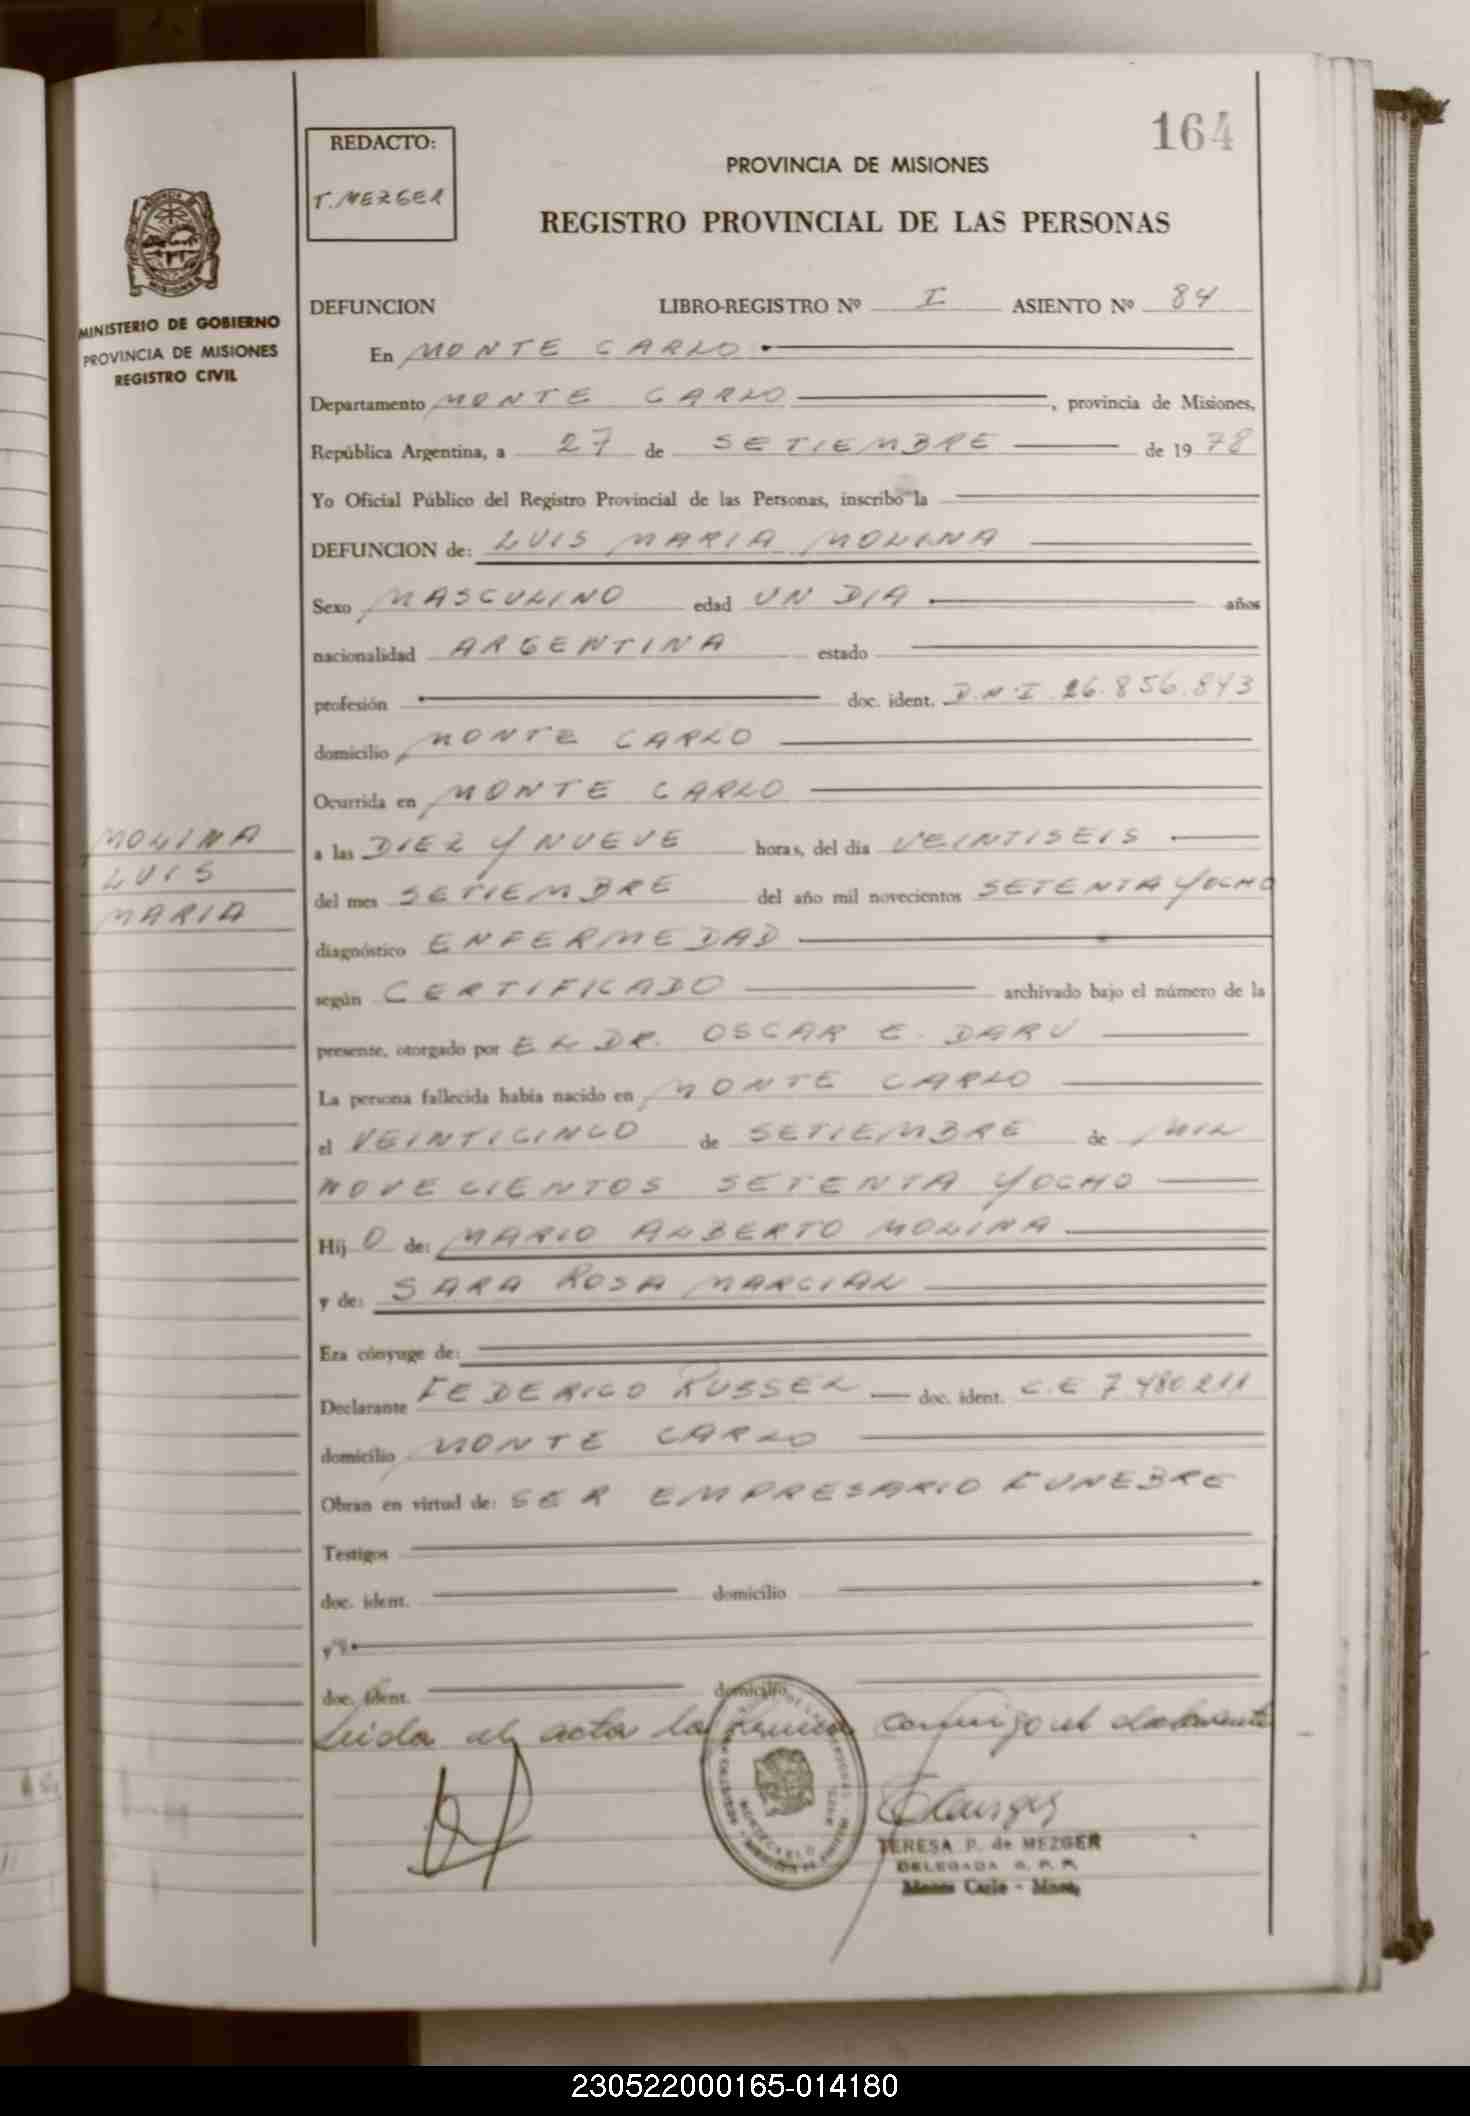 164
REDACTO:
T. MEZGER
PROVINCIA DE MISIONES
REGISTRO PROVINCIAL DE LAS PERSONAS
MINISTERIO DE GOBIERNO
PROVINCIA DE MISIONES
REGISTRO CIVIL
DEFUNCION LIBRO-REGISTRO Nº I ASIENTO Nº 84
En MONTE CARLO
Departamento MONTE CARLO, provincia de Misiones,
República Argentina, a 27 de SETIEMBRE de 1978
Yo Oficial Público del Registro Provincial de las Personas, inscribo la
DEFUNCION de: LUIS MARIA MOLINA
Sexo MASCULINO edad UN DIA años
nacionalidad ARGENTINA estado
profesión doc. ident. D.N.I. 26.856.843
domicilio MONTE CARLO
Ocurrida en MONTE CARLO
MOLINA
LUIS
MARIA
a las DIEZ Y NUEVE horas, del día VEINTISEIS
del mes SETIEMBRE del año mil novecientos SETENTA Y OCHO
diagnóstico ENFERMEDAD
según CERTIFICADO archivado bajo el número de la
presente, otorgado por EL DR. OSCAR E. DARU
La persona fallecida había nacido en MONTE CARLO
el VEINTICINCO de SETIEMBRE de MIL
NOVECIENTOS SETENTA Y OCHO
Hij O de: MARIO ALBERTO MOLINA
y de: SARA ROSA MARCIAL
Era cónyuge de:
Declarante FEDERICO RUSSEL doc. ident. C.E 7480211
domicilio MONTE CARLO
Obran en virtud de: SER EMPRESARIO FUNEBRE
Testigos
doc. ident. domicilio
y
doc. ident. domicilio
Leida el acta la firma conmigo el declarante
TERESA P. de MEZGER
DELEGADA R. P. P.
Monte Carlo - Mnes.
230522000165-014180